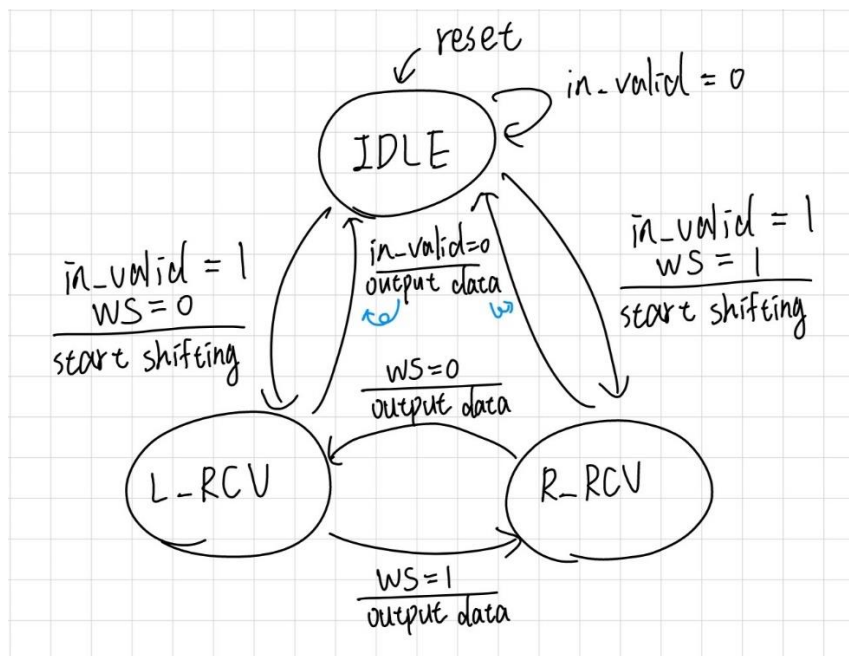 reset
in_valid = 0
IDLE
in_valid = 1
WS = 0
start shifting
in_valid=0
output data
in_valid = 1
WS = 1
start shifting
WS=0
output data
L_RCV
R_RCV
WS=1
output data